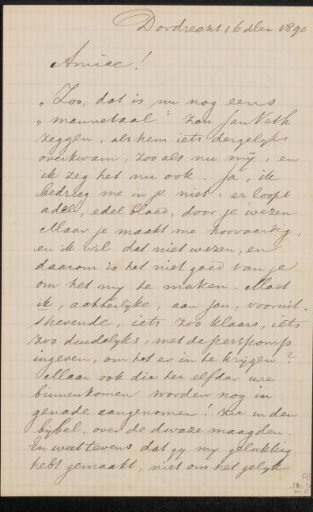 Dordrecht 16 dec 1890
Amice!
"Zoo, dat is nu nog eens
"mannetaal" zou Jan Veth
zeggen, als hem iets dergelyks
overkwam, zooals nu my, en
ik zeg het nu ook. Ja, ik
bedrieg me in je niet. er loopt
adel, edel bloed, door je wezen.
Maar je maakt me hoovaardig,
en ik wil dat niet wezen, en
daarom is het niet goed van je
om het my te maken. Moet
ik, achterlyke, aan jou, vooruit-
strevende, iets zoo klaars, iets
zoo duidelyks, met de perspomp
ingeven, om het er in te krygen?
Maar ook die ter elfder ure
binnenkomen worden nog in
genade aangenomen! Zie in den
bybel, over de dwaze maagden.
En weet tevens dat gy my gelukkig
hebt gemaakt, niet om het gelyk